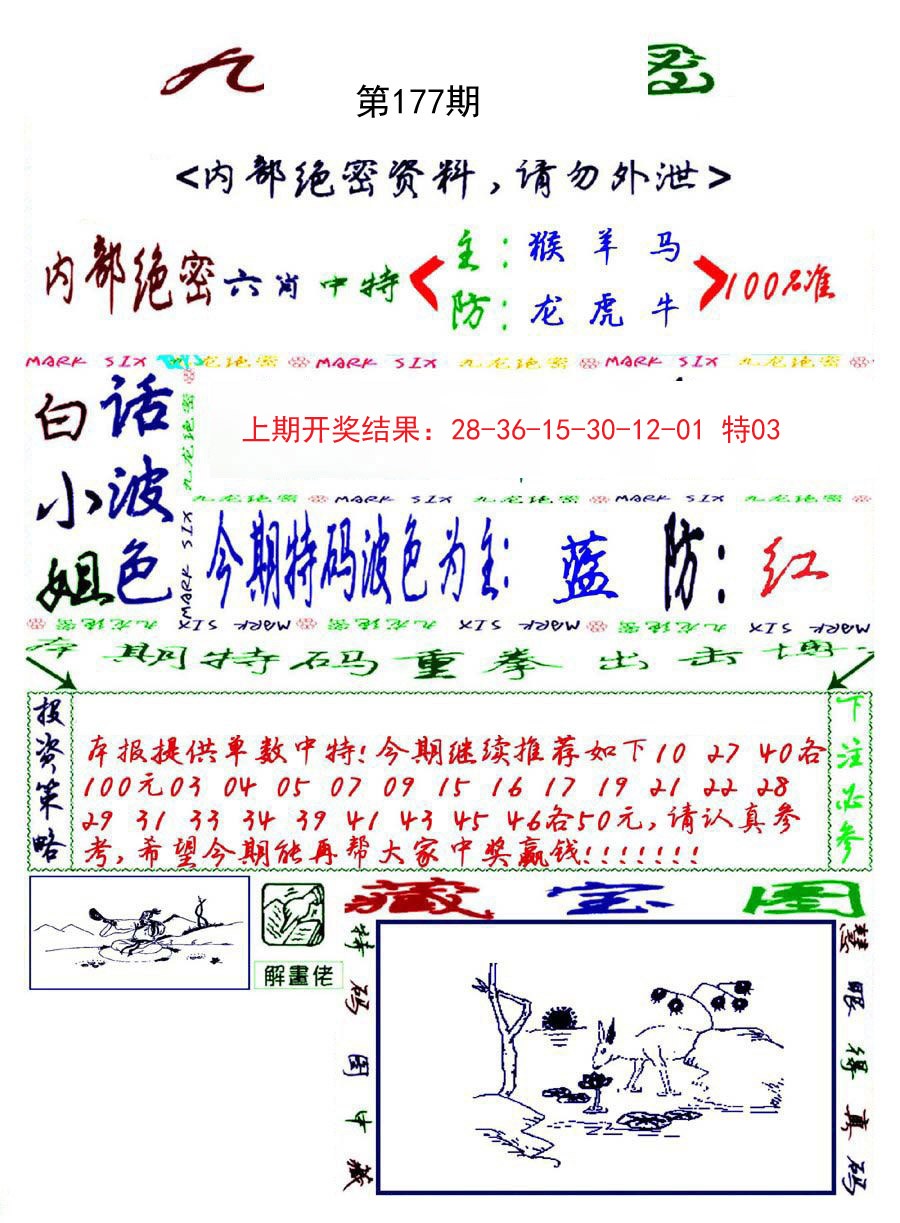 九 密
第177期
<内部绝密资料,请勿外泄>
内部绝密六肖中特
主:猴羊马
防:龙虎牛
100%准
MARK SIX 九龙绝密 MARK SIX 九龙绝密 MARK SIX 九龙绝密
白话
小波
姐色
九龙绝密 MARK SIX
上期开奖结果：28-36-15-30-12-01 特03
九龙绝密 MARK SIX 九龙绝密 MARK SIX 九龙绝密
今期特码波色为主: 蓝 防: 红
九龙绝密 MARK SIX 九龙绝密 MARK SIX 九龙绝密 MARK SIX
本期特码重拳出击博
投资策略
本报提供单数中特!今期继续推荐如下10 27 40各
100元03 04 05 07 09 15 16 17 19 21 22 28
29 31 33 34 39 41 43 45 46各50元,请认真参
考,希望今期能再帮大家中奖赢钱!!!!!!!
下注必参
解畫佬
藏宝图
特码图中藏
慧眼得真码